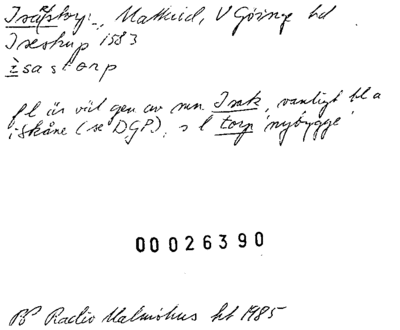 Matteröd, V Göinge hd
1583
ìsastorp
fl är väl gen av mn Isak, vanligt bl a
i Skåne (se DGP), s l torp 'nybygge'
00026390
Radio Malmöhus ht 1985